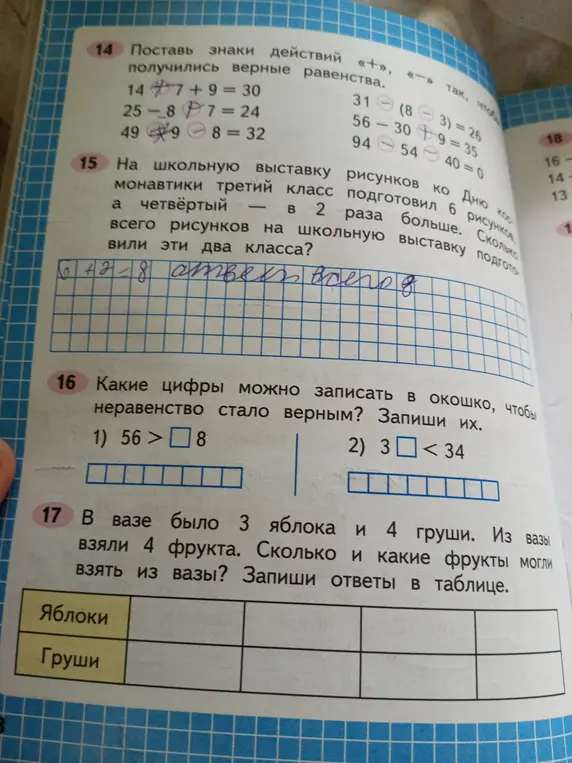 14 Поставь знаки действий «+», «−» так, чтобы
получились верные равенства.
14 + 7 + 9 = 30
31 − (8 − 3) = 26
25 − 8 + 7 = 24
56 − 30 + 9 = 35
49 − 9 − 8 = 32
94 − 54 − 40 = 0
15 На школьную выставку рисунков ко Дню кос-
монавтики третий класс подготовил 6 рисунков,
а четвёртый — в 2 раза больше. Сколько
всего рисунков на школьную выставку подгото-
вили эти два класса?
6 + 2 = 8 ответ всего 8
16 Какие цифры можно записать в окошко, чтобы
неравенство стало верным? Запиши их.
1) 56 > □ 8
2) 3 □ < 34
17 В вазе было 3 яблока и 4 груши. Из вазы
взяли 4 фрукта. Сколько и какие фрукты могли
взять из вазы? Запиши ответы в таблице.
Яблоки
Груши
18
16 −
14
13